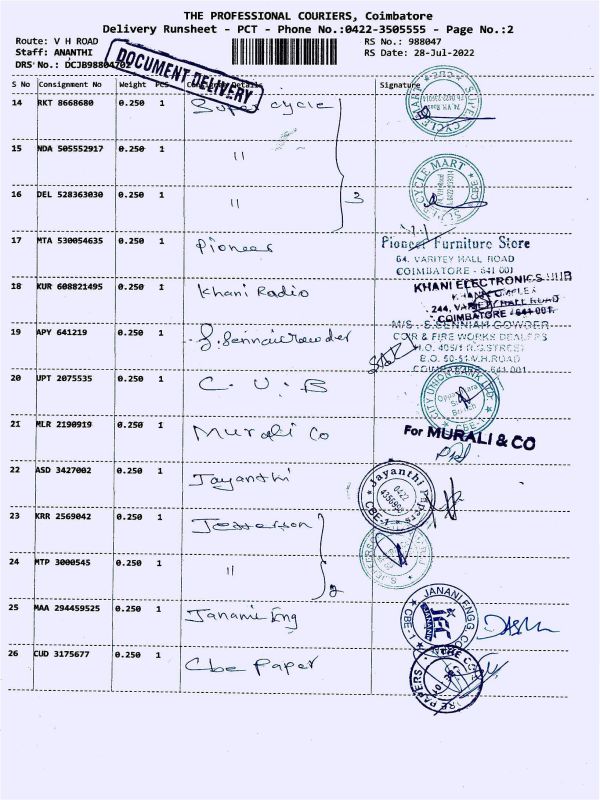 THE PROFESSIONAL COURIERS, Coimbatore
Delivery Runsheet - PCT - Phone No.:0422-3505555 - Page No.:2
Route: V H ROAD
RS No.: 988047
Staff: ANANTHI
RS Date: 28-Jul-2022
DRS No.: DCJB98804702
DOCUMENT DELIVERY
S No Consignment No Weight Pcs Consignee Details Signature
14 RKT 8668680 0.250 1 Super cycle
CYCLE MART
15 NDA 505552917 0.250 1 "
16 DEL 528363030 0.250 1 " 3
CYCLE MART CBE
17 MTA 530054635 0.250 1 Pioneer
Pioneer Furniture Store
64, VARITEY HALL ROAD
COIMBATORE - 641 001
18 KUR 608821495 0.250 1 Khani Radio
KHANI ELECTRONICS HUB
KHANI COMPLEX
244, VARIETY HALL ROAD
COIMBATORE - 641 001.
19 APY 641219 0.250 1
M/S. S.SENNIAH GOWDER
COIR & FIRE WORKS DEALERS
H.O. 409/1 R.G.STREET
B.O. 50-51 V.H.ROAD
COIMBATORE - 641 001.
20 UPT 2075535 0.250 1 C. U. B
CITY UNION BANK LTD
Branch
CBE
21 MLR 2190919 0.250 1 Murali Co
For MURALI & CO
22 ASD 3427002 0.250 1 Jayanthi
Jayanthi Papers
0422
CBE-1
23 KRR 2569042 0.250 1
24 MTP 3000545 0.250 1 " 2
25 MAA 294459525 0.250 1 Janani Eng
JANANI ENGG CO
JEC
JANANI
CBE-1
26 CUD 3175677 0.250 1 Cbe Paper